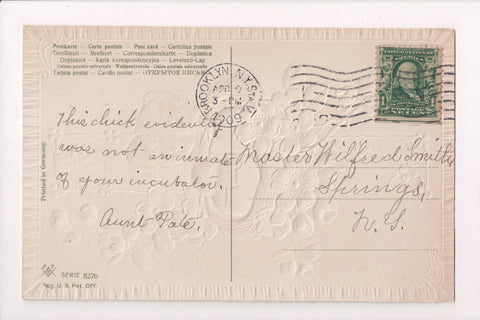 Postkarte – Carte postale – Post card – Cartolina postale
Brefkort – Correspondenzkarte – Dopisnice
Dopisnica – Karta korespondencyjna – Levelező-Lap
Union postale universelle – Weltpostverein – Unione postale universale
Tarjeta postal – Cartão postal – ОТКРЫТОЕ ПИСЬМО
BROOKLYN, N.Y. STA.
APR 9
3 - PM
1909
1
This chick evidently
was not an inmate
of your incubator.
Aunt Pate.
Master Wilfred Smith
Springs,
Printed in Germany.
SERIE 8276
Reg. U. S. Pat. Off.